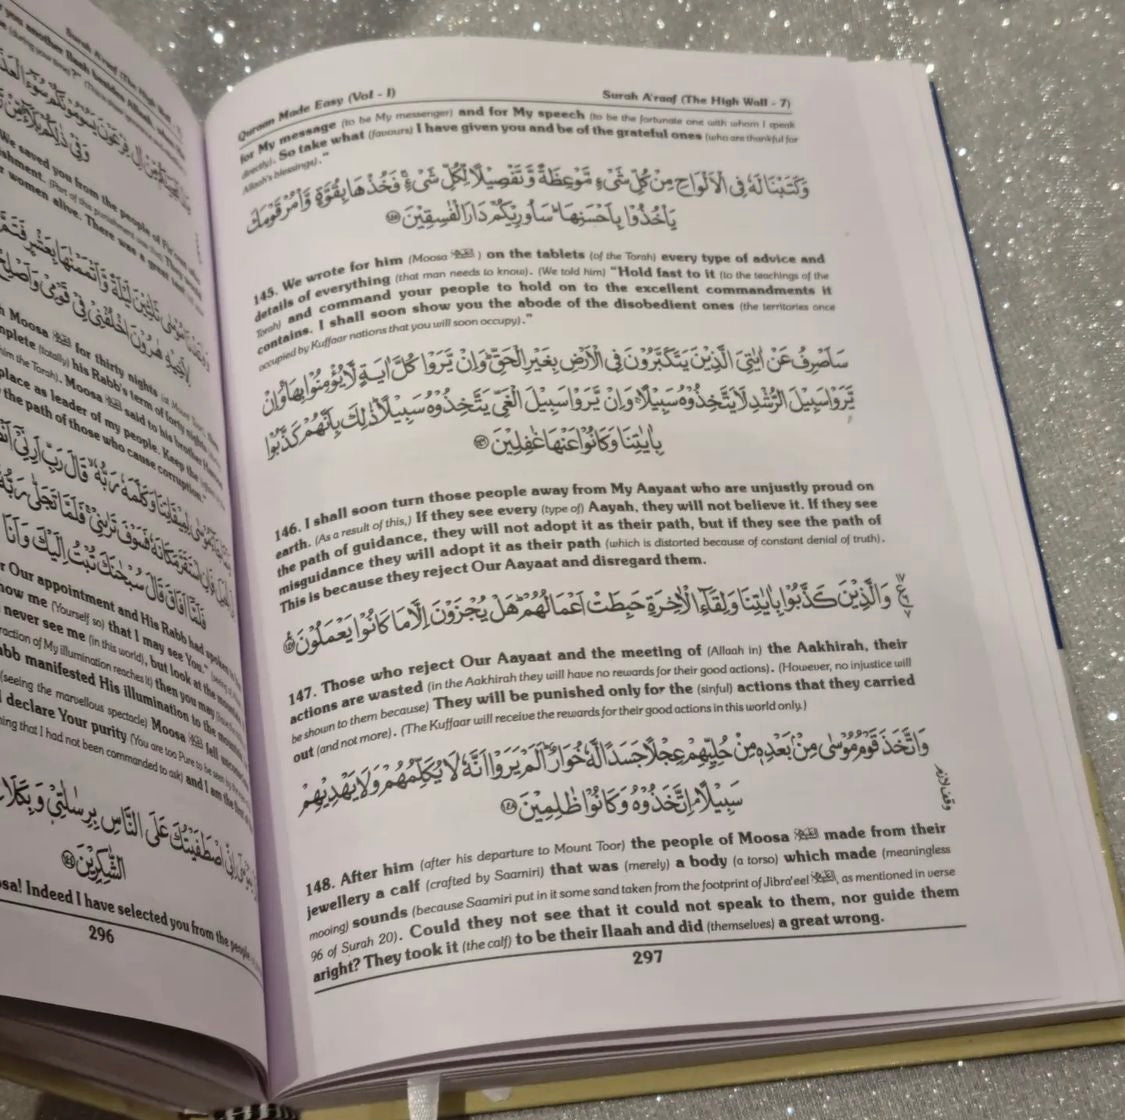 Surah A'raaf (The High Wall - 7)
you another Ilaah besides Allaah
وَفِیْ ذٰلِكُمْ بَلَآءٌ مِّنْ
We saved you from the people of Fir'oun
women alive. There was a great
لِاَخِیْهِ هٰرُوْنَ اخْلُفْنِیْ فِیْ قَوْمِیْ وَاَصْلِحْ
Moosa for thirty nights
(totally) his Rabb's term of forty nights
him the Torah). Moosa said to his brother
place as leader of my people. Keep the
the path of those who cause corruption."
وَكَلَّمَهٗ رَبُّهٗ ۙ قَالَ رَبِّ اَرِنِیْۤ
اسْتَقَرَّ مَكَانَهٗ فَسَوْفَ تَرٰىنِیْ ۚ فَلَمَّا تَجَلّٰی رَبُّهٗ
فَلَمَّاۤ اَفَاقَ قَالَ سُبْحٰنَكَ تُبْتُ اِلَیْكَ وَاَنَا
Our appointment and His Rabb had spoken
me (Yourself so) that I may see You."
never see me (in this world), but look at the
of My illumination reaches it) then you may
manifested His illumination to the
(seeing the marvellous spectacle) Moosa fell
declare Your purity (You are too Pure to be seen
that I had not been commanded to ask) and I am the
اصْطَفَیْتُكَ عَلَی النَّاسِ بِرِسٰلٰتِیْ وَبِكَلَامِیْ
الشّٰكِرِیْنَ ۝۱۴۴
Indeed I have selected you from the people
296
Quraan Made Easy (Vol - I) Surah A'raaf (The High Wall - 7)
for My message (to be My messenger) and for My speech (to be the fortunate one with whom I speak
directly). So take what (favours) I have given you and be of the grateful ones (who are thankful for
Allaah's blessings)."
وَكَتَبْنَا لَهٗ فِی الْاَلْوَاحِ مِنْ كُلِّ شَیْءٍ مَّوْعِظَةً وَّتَفْصِیْلًا لِّكُلِّ شَیْءٍ ۚ فَخُذْهَا بِقُوَّةٍ وَّاْمُرْ قَوْمَكَ
یَاْخُذُوْا بِاَحْسَنِهَا ؕ سَاُورِیْكُمْ دَارَ الْفٰسِقِیْنَ ۝۱۴۵
145. We wrote for him (Moosa ) on the tablets (of the Torah) every type of advice and
details of everything (that man needs to know). (We told him) "Hold fast to it (to the teachings of the
Torah) and command your people to hold on to the excellent commandments it
contains. I shall soon show you the abode of the disobedient ones (the territories once
occupied by Kuffaar nations that you will soon occupy)."
سَاَصْرِفُ عَنْ اٰیٰتِیَ الَّذِیْنَ یَتَكَبَّرُوْنَ فِی الْاَرْضِ بِغَیْرِ الْحَقِّ ؕ وَاِنْ یَّرَوْا كُلَّ اٰیَةٍ لَّا یُؤْمِنُوْا بِهَا ۚ وَاِنْ
یَّرَوْا سَبِیْلَ الرُّشْدِ لَا یَتَّخِذُوْهُ سَبِیْلًا ۚ وَاِنْ یَّرَوْا سَبِیْلَ الْغَیِّ یَتَّخِذُوْهُ سَبِیْلًا ؕ ذٰلِكَ بِاَنَّهُمْ كَذَّبُوْا
بِاٰیٰتِنَا وَكَانُوْا عَنْهَا غٰفِلِیْنَ ۝۱۴۶
146. I shall soon turn those people away from My Aayaat who are unjustly proud on
earth. (As a result of this,) If they see every (type of) Aayah, they will not believe it. If they see
the path of guidance, they will not adopt it as their path, but if they see the path of
misguidance they will adopt it as their path (which is distorted because of constant denial of truth).
This is because they reject Our Aayaat and disregard them.
وَالَّذِیْنَ كَذَّبُوْا بِاٰیٰتِنَا وَلِقَآءِ الْاٰخِرَةِ حَبِطَتْ اَعْمَالُهُمْ ؕ هَلْ یُجْزَوْنَ اِلَّا مَا كَانُوْا یَعْمَلُوْنَ ۝۱۴۷ ع
147. Those who reject Our Aayaat and the meeting of (Allaah in) the Aakhirah, their
actions are wasted (in the Aakhirah they will have no rewards for their good actions). (However, no injustice will
be shown to them because) They will be punished only for the (sinful) actions that they carried
out (and not more). (The Kuffaar will receive the rewards for their good actions in this world only.)
وَاتَّخَذَ قَوْمُ مُوْسٰی مِنْۢ بَعْدِهٖ مِنْ حُلِیِّهِمْ عِجْلًا جَسَدًا لَّهٗ خُوَارٌ ؕ اَلَمْ یَرَوْا اَنَّهٗ لَا یُكَلِّمُهُمْ وَلَا یَهْدِیْهِمْ
سَبِیْلًا ۘ اِتَّخَذُوْهُ وَكَانُوْا ظٰلِمِیْنَ ۝۱۴۸
وقف لازم
148. After him (after his departure to Mount Toor) the people of Moosa made from their
jewellery a calf (crafted by Saamiri) that was (merely) a body (a torso) which made (meaningless
mooing) sounds (because Saamiri put in it some sand taken from the footprint of Jibra'eel , as mentioned in verse
96 of Surah 20). Could they not see that it could not speak to them, nor guide them
aright? They took it (the calf) to be their Ilaah and did (themselves) a great wrong.
297